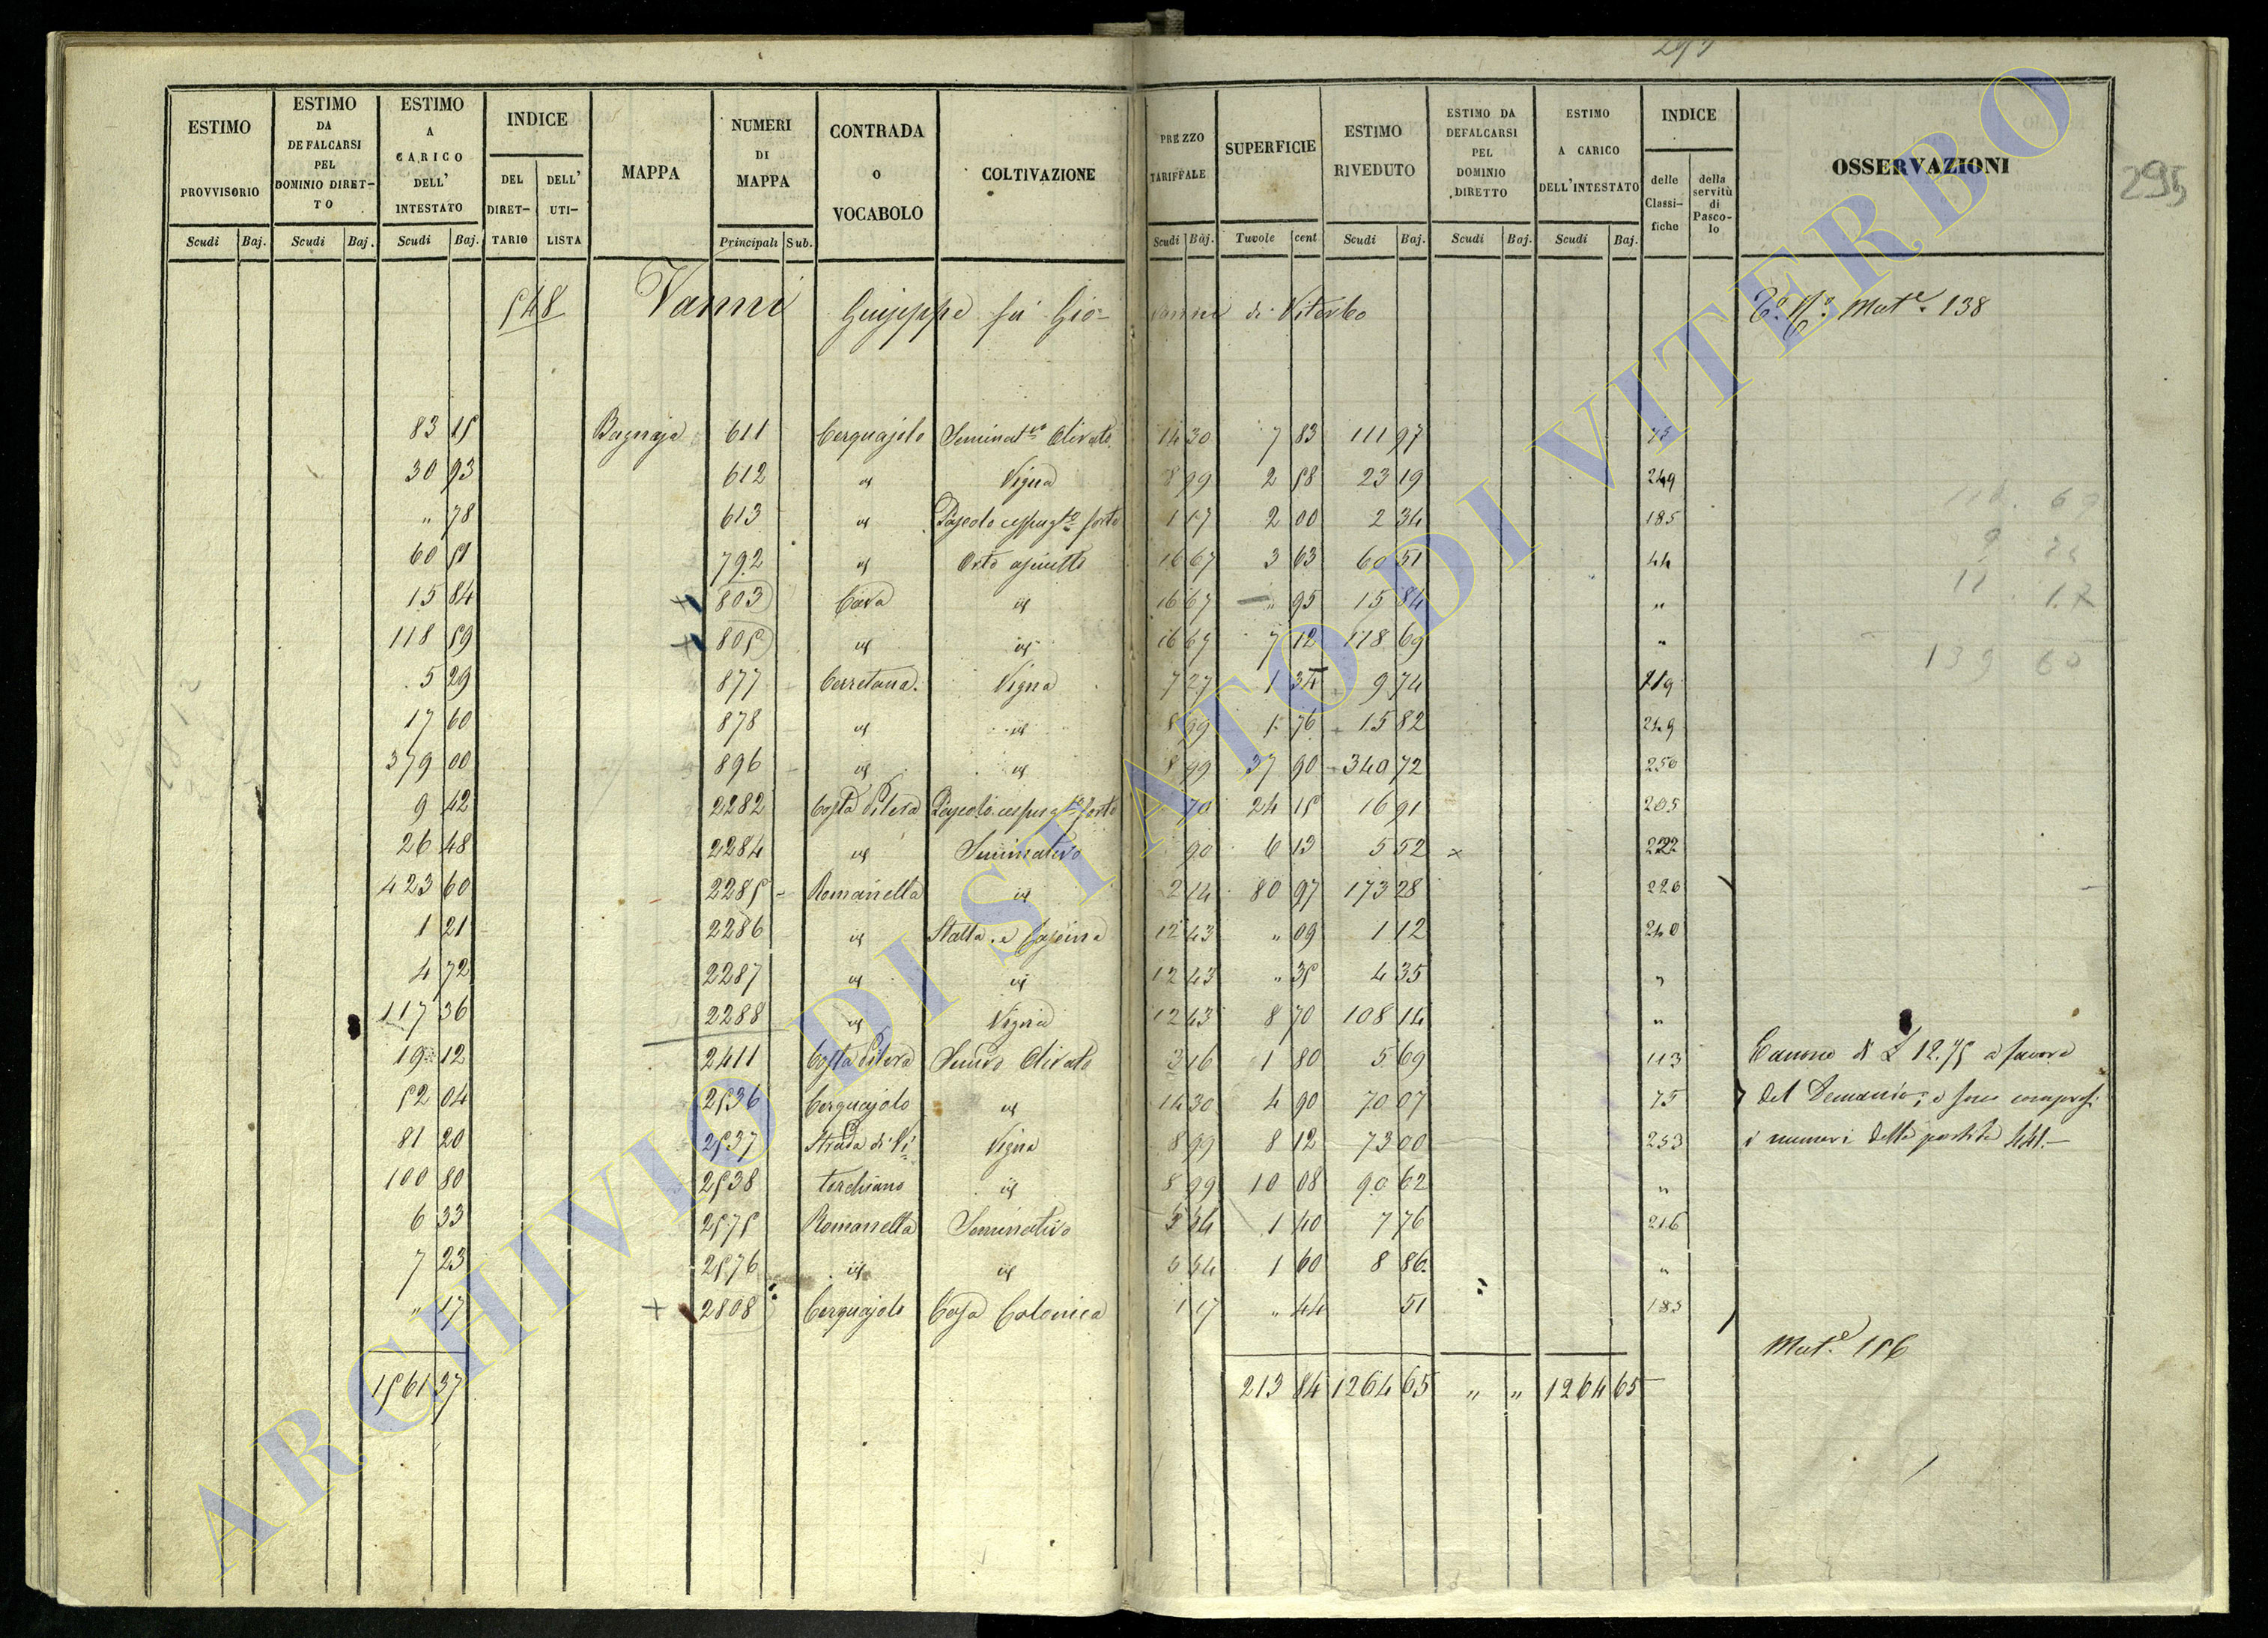 297
295
ESTIMO PROVVISORIO Scudi Baj.
ESTIMO DA DEFALCARSI PEL DOMINIO DIRET-TO Scudi Baj.
ESTIMO A CARICO DELL' INTESTATO Scudi Baj.
INDICE DEL DIRET-TARIO DELL' UTI-LISTA
MAPPA
NUMERI DI MAPPA Principali Sub.
CONTRADA O VOCABOLO
COLTIVAZIONE
PREZZO TARIFFALE Scudi Baj.
SUPERFICIE Tavole cent
ESTIMO RIVEDUTO Scudi Baj.
ESTIMO DA DEFALCARSI PEL DOMINIO DIRETTO Scudi Baj.
ESTIMO A CARICO DELL'INTESTATO Scudi Baj.
INDICE delle Classi-fiche della servitù di Pasco-lo
OSSERVAZIONI
548 Vanni Giuseppe fu Gio=vanni di Viterbo Mat.e 138
83 15 Bagnaja 611 Cerquajolo Seminat.vo Olivato 14 30 7 83 111 97 75
30 93 612 id Vigna 8 99 2 58 23 19 249
" 78 613 id Pascolo cespugl.to forte 1 17 2 00 2 34 185
60 51 792 id Orto asciutto 16 67 3 63 60 51 44
15 84 + 803 Cava id 16 67 " 95 15 84 "
118 59 + 805 id id 16 67 7 12 118 69 "
5 29 877 Cerretana Vigna 7 27 1 34 9 74 219
17 60 878 id id 8 99 1 76 15 82 249
379 00 896 id id 8 99 37 90 340 72 250
9 42 2282 Costa Pilera Pascolo cespugl.to forte 70 24 15 16 91 205
26 48 2284 id Seminativo 90 6 13 5 52 × 222
423 60 2285 Romanella id 2 14 80 97 173 28 226
1 21 2286 id Stalla e Cascina 12 43 " 09 1 12 240
4 72 2287 id id 12 43 " 35 4 35 "
117 36 2288 id Vigna 12 43 8 70 108 14 "
19 12 2411 Costa Pilera Semvo Olivato 3 16 1 80 5 69 113 Canone di £ 12.75 a favore
52 04 2536 Cerquajolo id 14 30 4 90 70 07 75 del Demanio, e sono compresi
81 20 2537 Strada di Vi= Vigna 8 99 8 12 73 00 253 i numeri della partita 441.—
100 80 2538 torchiano id 8 99 10 08 90 62 "
6 33 2575 Romanella Seminativo 5 54 1 40 7 76 216
7 23 2576 id id 5 54 1 60 8 86 "
" 17 + 2808 Cerquajolo Casa Colonica 1 17 " 44 51 185
Mat.e 156
1561 37 213 84 1264 65 " " 1264 65
9 25
139 60
ARCHIVIO DI STATO DI VITERBO